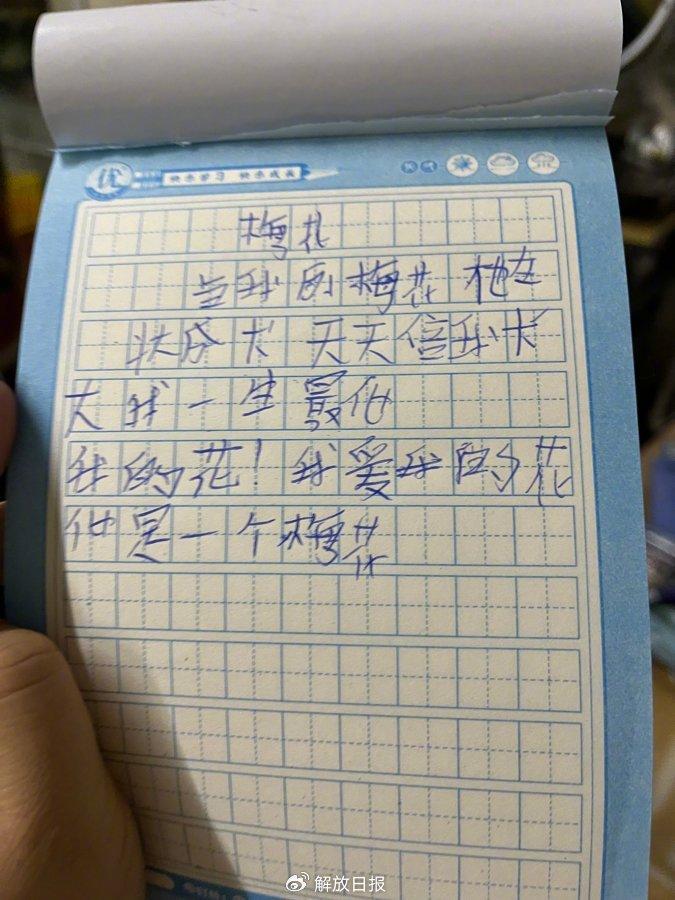 优 快乐学习 快乐成长
梅花
当我的梅花 他在
天天 我长
大我一生最
我的花!我爱我的花
他是一个梅花
解放日报